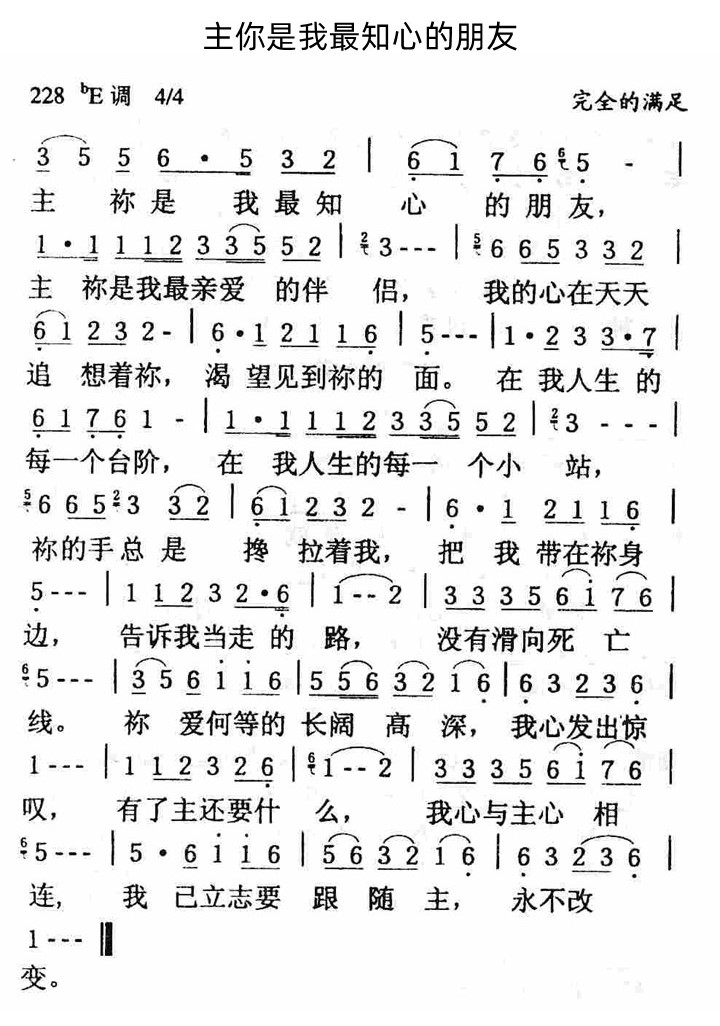 主你是我最知心的朋友
228 ᵇE 调 4/4 完全的满足
3 5 5 6 · 5 3 2 | 6 1 7 6 6 5 - |
主 祢 是 我 最 知 心 的 朋 友，
1 · 1 1 1 2 3 3 5 5 2 | 2 3 - - - | 5 6 6 5 3 3 2 |
主 祢是我最亲爱 的伴 侣， 我的心在天天
6 1 2 3 2 - | 6 · 1 2 1 1 6 | 5 - - - | 1 · 2 3 3 · 7 |
追 想着祢， 渴 望见到祢的 面。 在 我人生 的
6 1 7 6 1 - | 1 · 1 1 1 2 3 3 5 5 2 | 2 3 - - - |
每一个台阶， 在 我人生的每一 个小 站，
5 6 6 5 2 3 3 2 | 6 1 2 3 2 - | 6 · 1 2 1 1 6 |
祢的手总 是 搀 拉着我， 把 我 带在祢身
5 - - - | 1 1 2 3 2 · 6 | 1 - - 2 | 3 3 3 5 6 1 7 6 |
边， 告诉我当走 的 路， 没有滑向死 亡
6 5 - - - | 3 5 6 1 1 6 | 5 5 6 3 2 1 6 | 6 3 2 3 6 |
线。 祢 爱何等的 长阔 高 深， 我心发出惊
1 - - - | 1 1 2 3 2 6 | 6 1 - - 2 | 3 3 3 5 6 1 7 6 |
叹， 有了主还要什 么， 我心与主心 相
6 5 - - - | 5 · 6 1 1 6 | 5 6 3 2 1 6 | 6 3 2 3 6 |
连， 我 已立志要 跟 随 主， 永不改
1 - - - ‖
变。